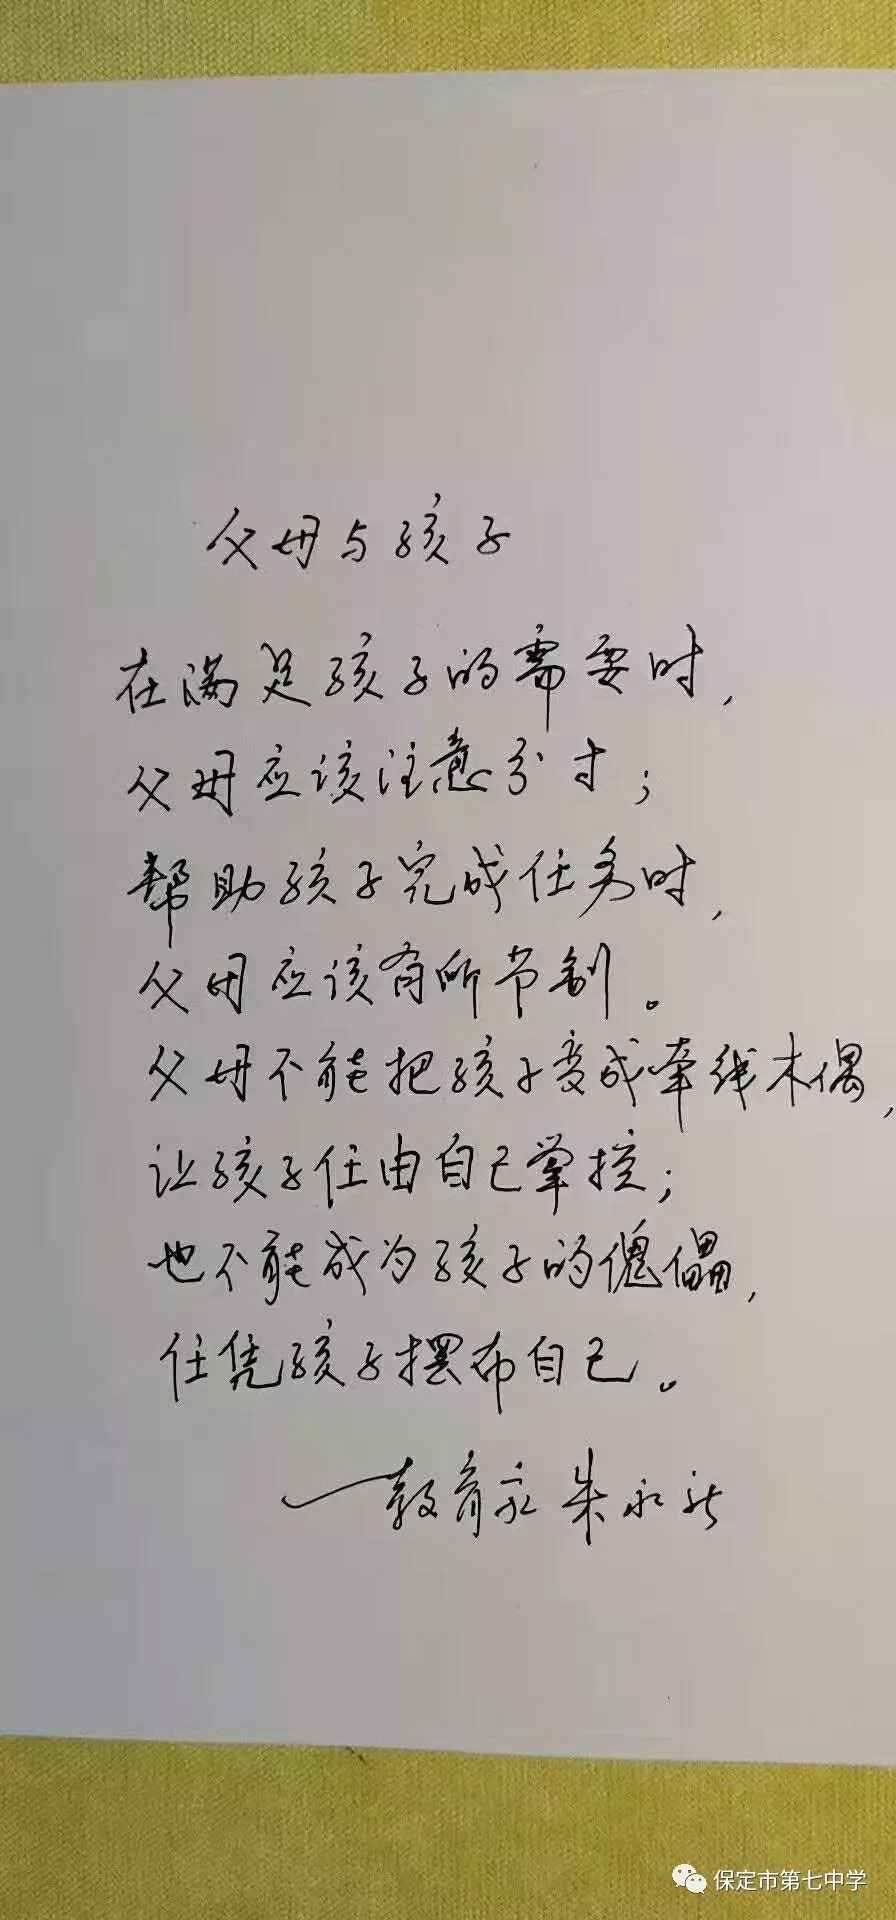 父母与孩子
在满足孩子的需要时,
父母应该注意分寸;
帮助孩子完成任务时,
父母应该有所节制。
父母不能把孩子变成牵线木偶,
让孩子任由自己掌控;
也不能成为孩子的傀儡,
任凭孩子摆布自己。
——教育家朱永新
保定市第七中学